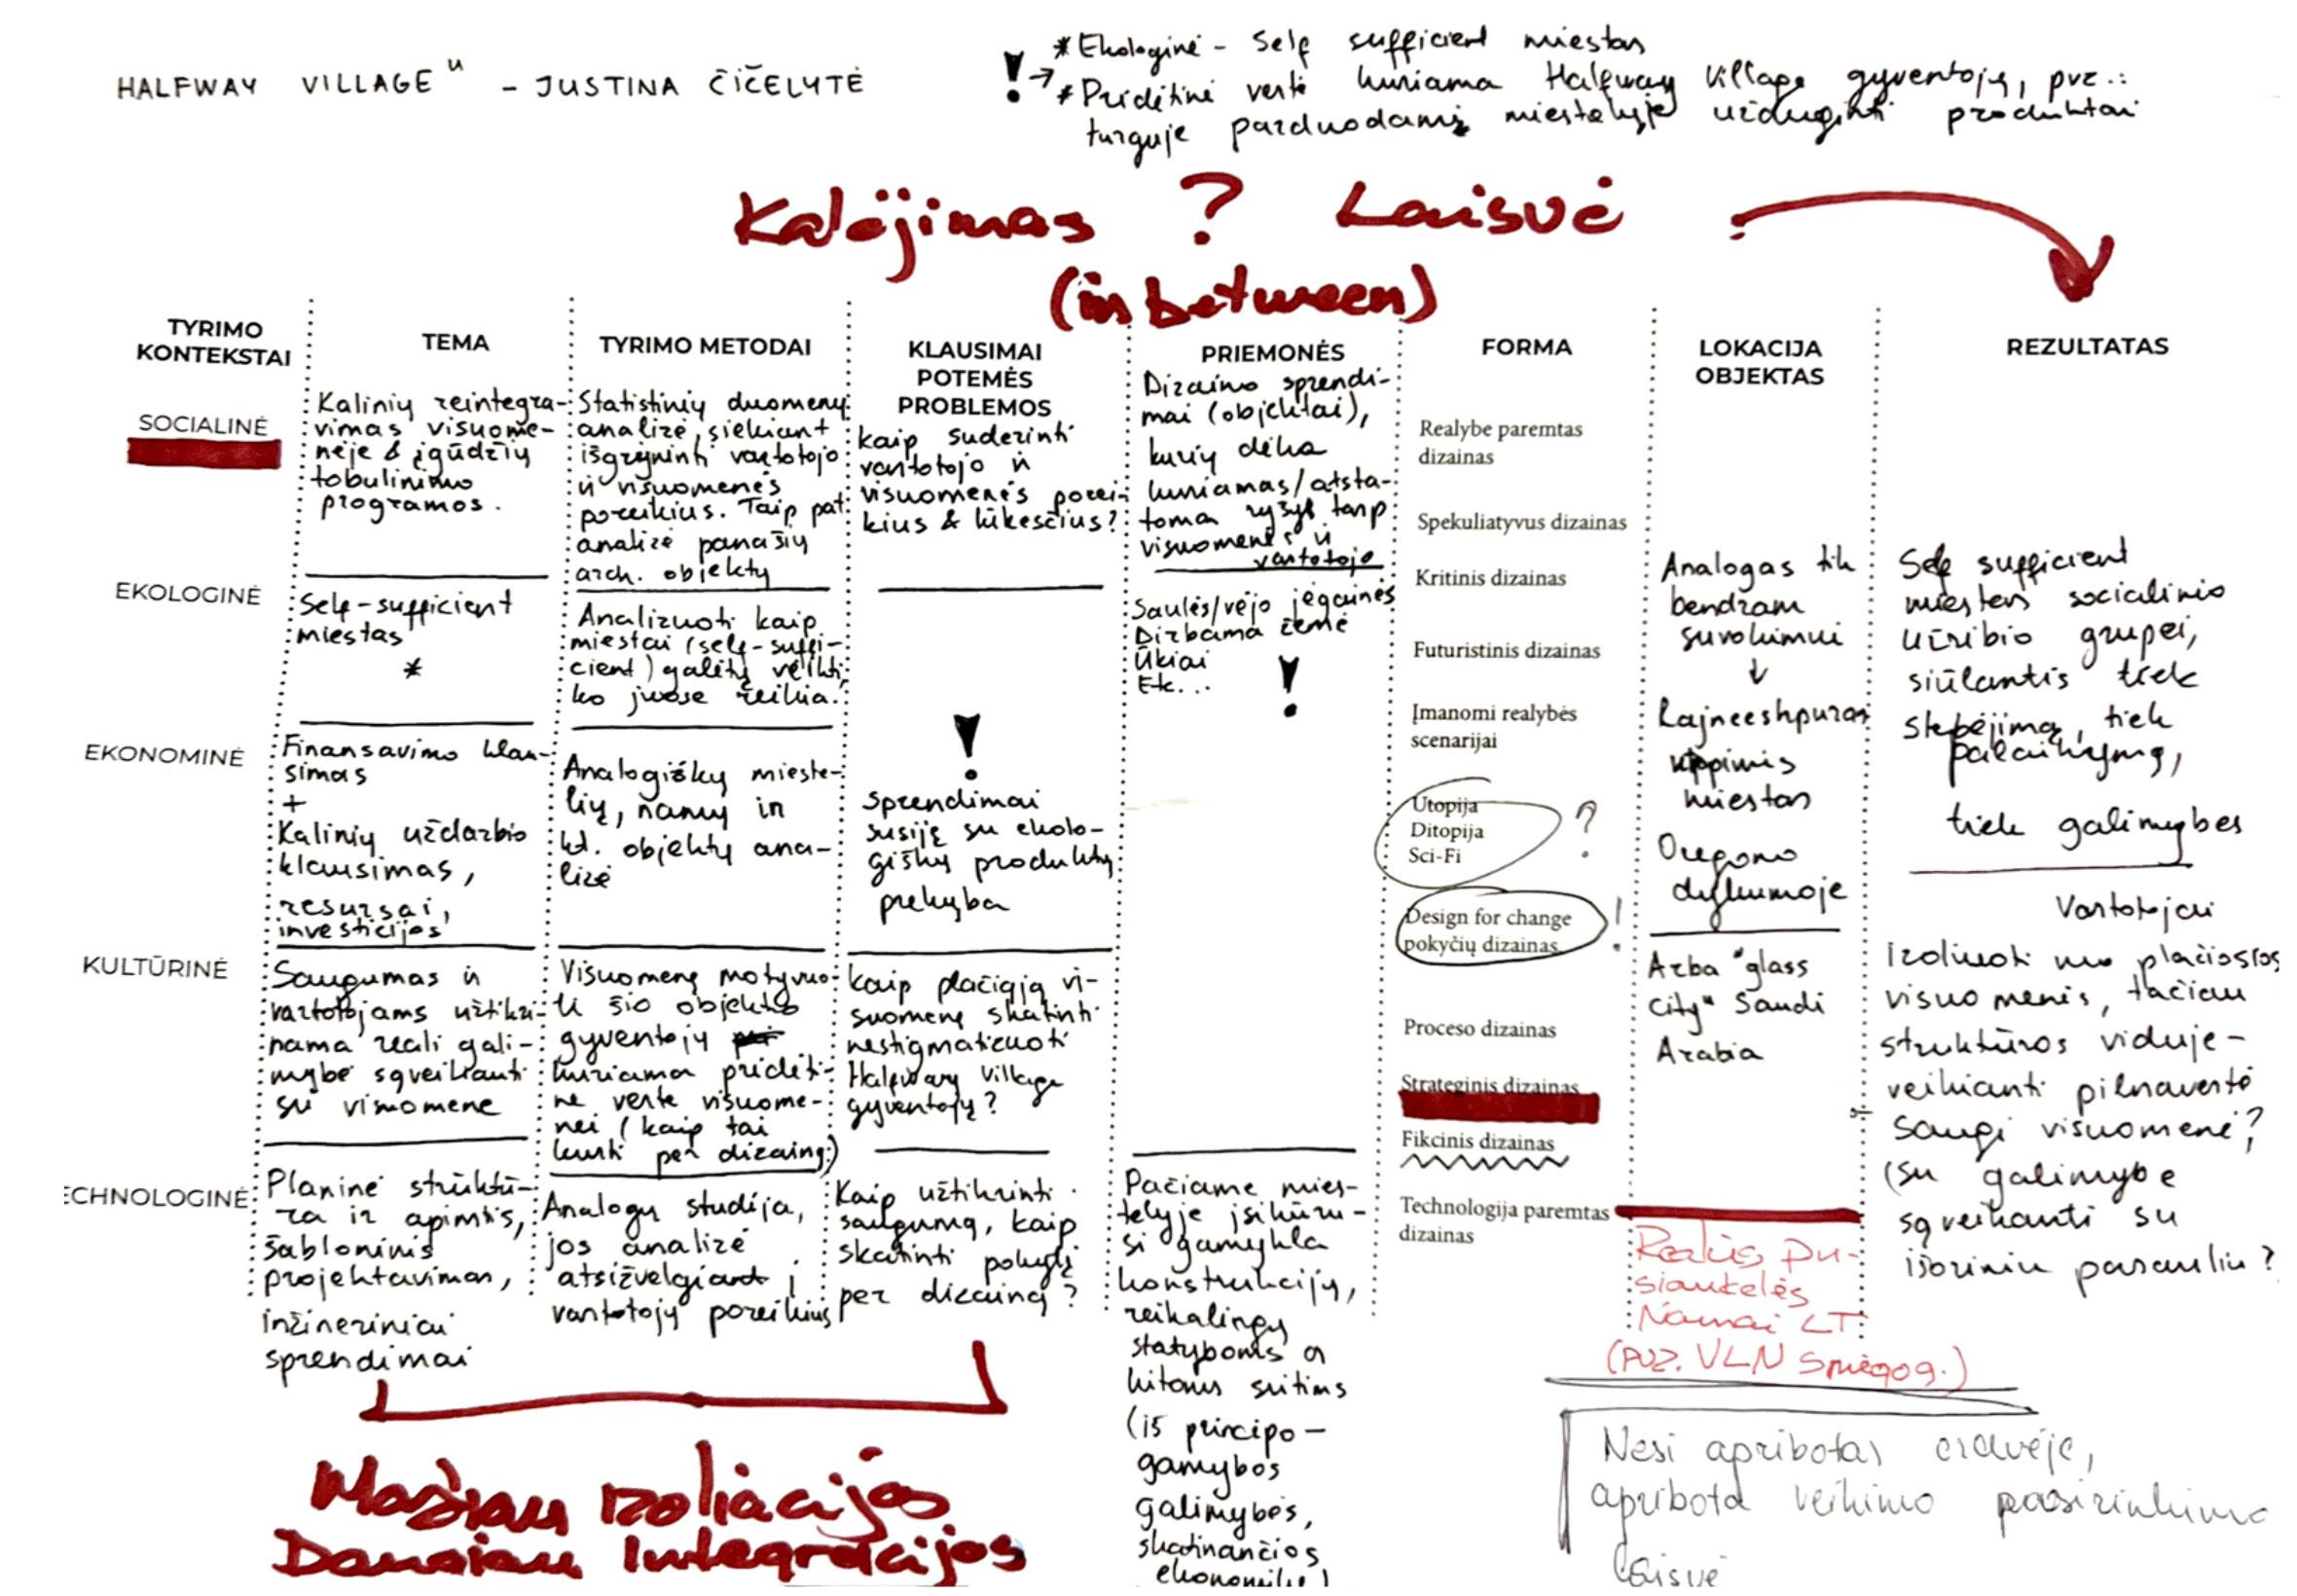 HALFWAY VILLAGE" - JUSTINA ČIČELYTĖ
! → * Ekologinė - Self sufficient miestas
* Pridėtinė vertė kuriama Halfway Village gyventojų, pvz.:
turguje parduodami miestelyje užauginti produktai
Kalėjimas ? Laisvė
(in between)
TYRIMO
KONTEKSTAI
TEMA
TYRIMO METODAI
KLAUSIMAI
POTEMĖS
PROBLEMOS
PRIEMONĖS
FORMA
LOKACIJA
OBJEKTAS
REZULTATAS
SOCIALINĖ
Kalinių reintegra-
vimas visuome-
nėje & įgūdžių
tobulinimo
programos.
Statistinių duomenų
analizė, siekiant
išgryninti vartotojo
ir visuomenės
poreikius. Taip pat
analizė panašių
arch. objektų
kaip suderinti
vartotojo ir
visuomenės porei-
kius & lūkesčius?
Dizaino sprendi-
mai (objektai),
kurių dėka
kuriamas/atsta-
toma ryšys tarp
visuomenės ir
vartotojo
EKOLOGINĖ
Self-sufficient
miestas
*
Analizuoti kaip
miestai (self-suffi-
cient) galėtų veikti,
ko juose reikia.
Saulės/vėjo jėgainės
Dirbama žemė
Ūkiai
Etc...
!
EKONOMINĖ
Finansavimo klau-
simas
+
Kalinių uždarbio
klausimas,
resursai,
investicijos
Analogiškų mieste-
lių, namų ir
kt. objektų ana-
lizė
!
Sprendimai
susiję su ekolo-
giškų produktų
prekyba
KULTŪRINĖ
Saugumas ir
vartotojams užtikri-
nama reali gali-
mybė sąveikauti
su visuomene
Visuomenę motyvuo-
ti šio objekto
gyventojų
kuriama pridėti-
nė vertė visuome-
nei (kaip tai
kurti per dizainą?)
kaip plačiąją vi-
suomenę skatinti
nestigmatizuoti
Halfway Village
gyventojų?
ECHNOLOGINĖ
Planinė struktū-
ra ir apimtis,
šabloninis
projektavimas,
inžineriniai
sprendimai
Analogų studija,
jos analizė
atsižvelgiant į
vartotojų poreikius
Kaip užtikrinti
saugumą, kaip
skatinti pokytį
per dizainą?
Pačiame mies-
telyje įsikūru-
si gamykla
konstrukcijų,
reikalingų
statyboms ar
kitoms sritims
(iš principo -
gamybos
galimybės,
skatinančios
ekonomiką)
Realybe paremtas
dizainas
Spekuliatyvus dizainas
Kritinis dizainas
Futuristinis dizainas
Įmanomi realybės
scenarijai
Utopija
Ditopija
Sci-Fi
?
Design for change
pokyčių dizainas
!
Proceso dizainas
Strateginis dizainas
Fikcinis dizainas
Technologija paremtas
dizainas
Analogas tik
bendram
suvokimui
↓
Rajneeshpuram
miestas
Oregono
dykumoje
Arba "glass
city" Saudi
Arabia
Realūs pu-
siaukelės
Namai LT
(PVZ. VLN
Self sufficient
miestas socialinio
užribio grupei,
siūlantis tiek
stebėjimą, tiek
palaikymą,
tiek galimybes
Vartotojai
Izoliuoti nuo plačiosios
visuomenės, tačiau
struktūros viduje -
veikianti pilnavertė
saugi visuomenė?
(su galimybe
sąveikauti su
išoriniu pasauliu?
Nesi apribotas erdvėje,
apribota veikimo pasirinkimo
laisvė
Mažiau Izoliacijos
Daugiau Integracijos